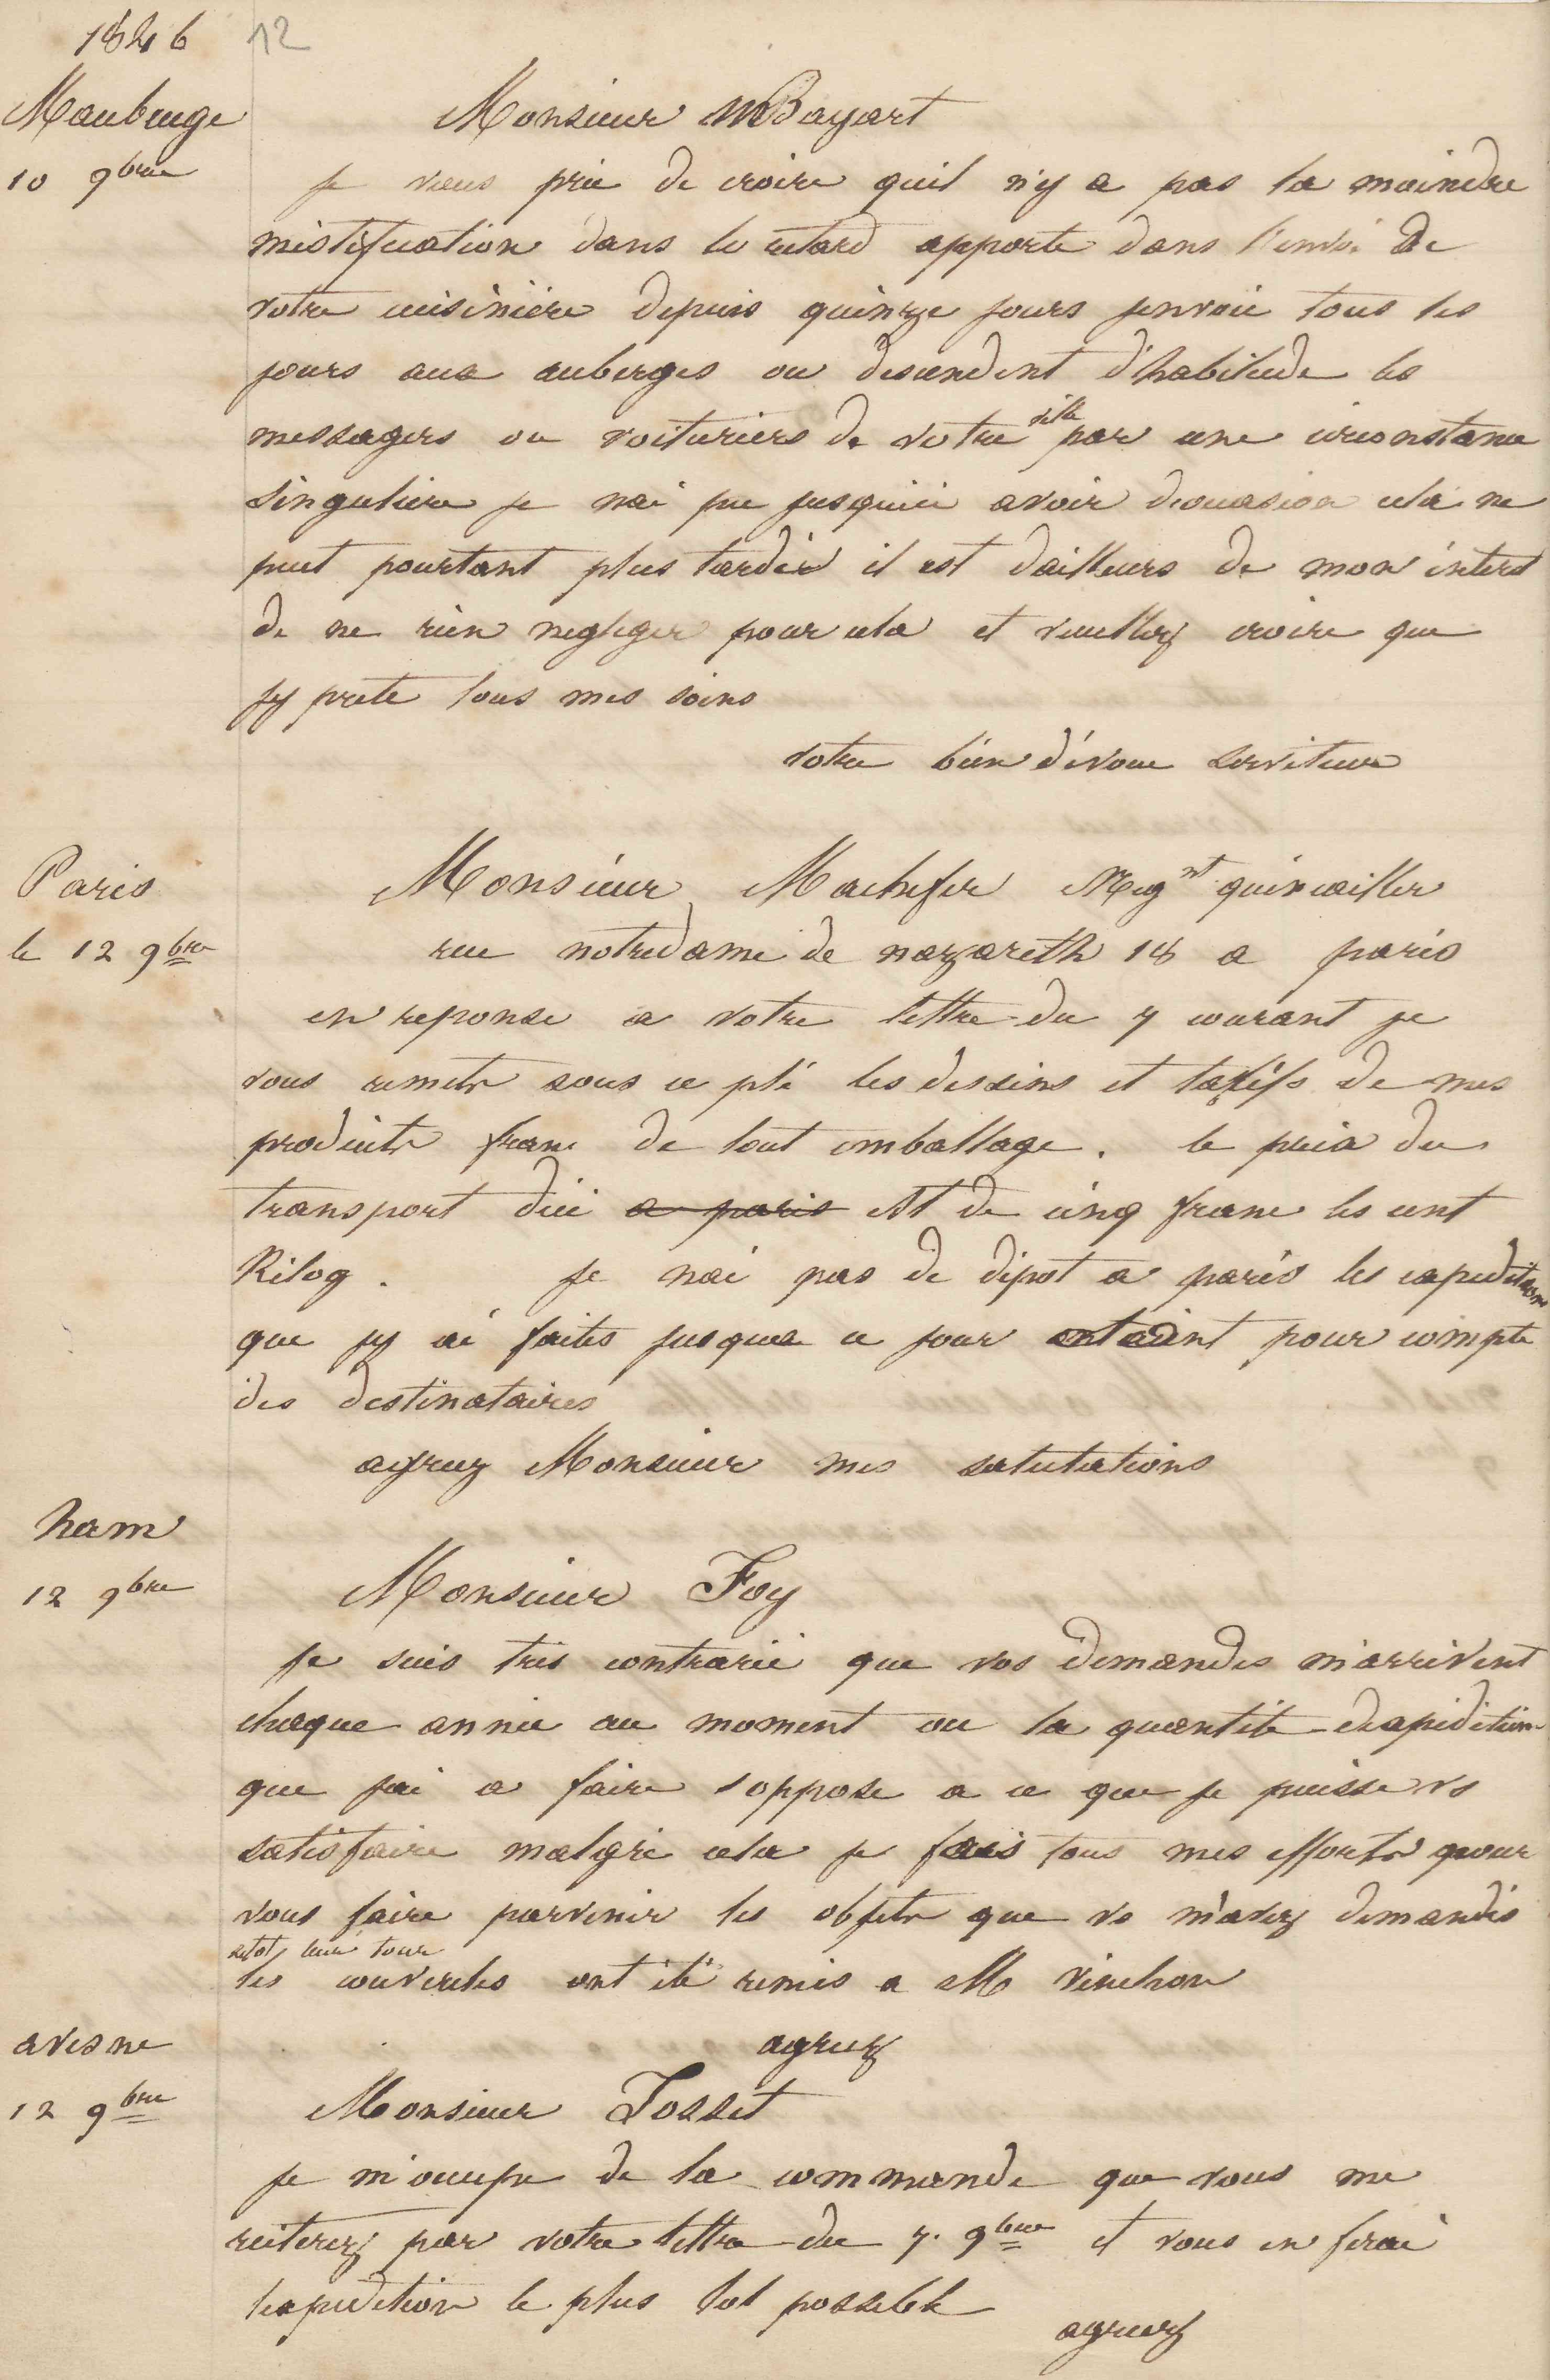 1846 12
Maubeuge
10 9bre
Monsieur Bayart
je vous prie de croire quil n'y a pas la moindre
mistification dans le retard apporte dans l'envoi de
votre cuisinière depuis quinze jours jenvoie tous les
jours aux auberges ou descendent d'habitude les
messagers ou voituriers de votre ville par une circonstance
singuliere je nai pu jusquici avoir doccasion cela ne
peut pourtant plus tarder il est dailleurs de mon interet
de ne rien negliger pour cela et veuillez croire que
jy prete tous mes soins
votre bien dévoue serviteur
Paris
le 12 9bre
Monsieur Machefer Negnt quincailler
rue notredame de nazareth 18 a paris
en reponse a votre lettre du 7 courant je
vous remets sous ce pli les dessins et tarifs de mes
produits franc de tout emballage. le prix du
transport dici a paris est de cinq franc les cent
Kilog. je nai pas de dépot a paris les expeditions
que jy ai faites jusqua ce jour étaient pour compte
des destinataires
agreez Monsieur mes salutations
ham
12 9bre
Monsieur Foy
je suis tres contrarié que vos demandes m'arrivent
chaque année au moment ou la quantité dexpédition
que jai a faire soppose a ce que je puisse vs
satisfaire malgré cela je fais tous mes efforts pour
vous faire parvenir les objets que vs m'avez demandés
leur tour
les couvercles ont été remis a M Vinchon
agreez
avesne
12 9bre
Monsieur Josset
je m'occupe de la commande que vous me
reiterez par votre lettre du 7. 9bre et vous en ferai
lexpedition le plus tot possible
agreez